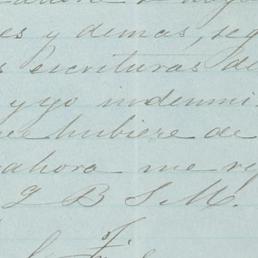 es y demas, seg
s escrituras de
y yo indemni
e hubiere de
ahora me re
Q B S M.